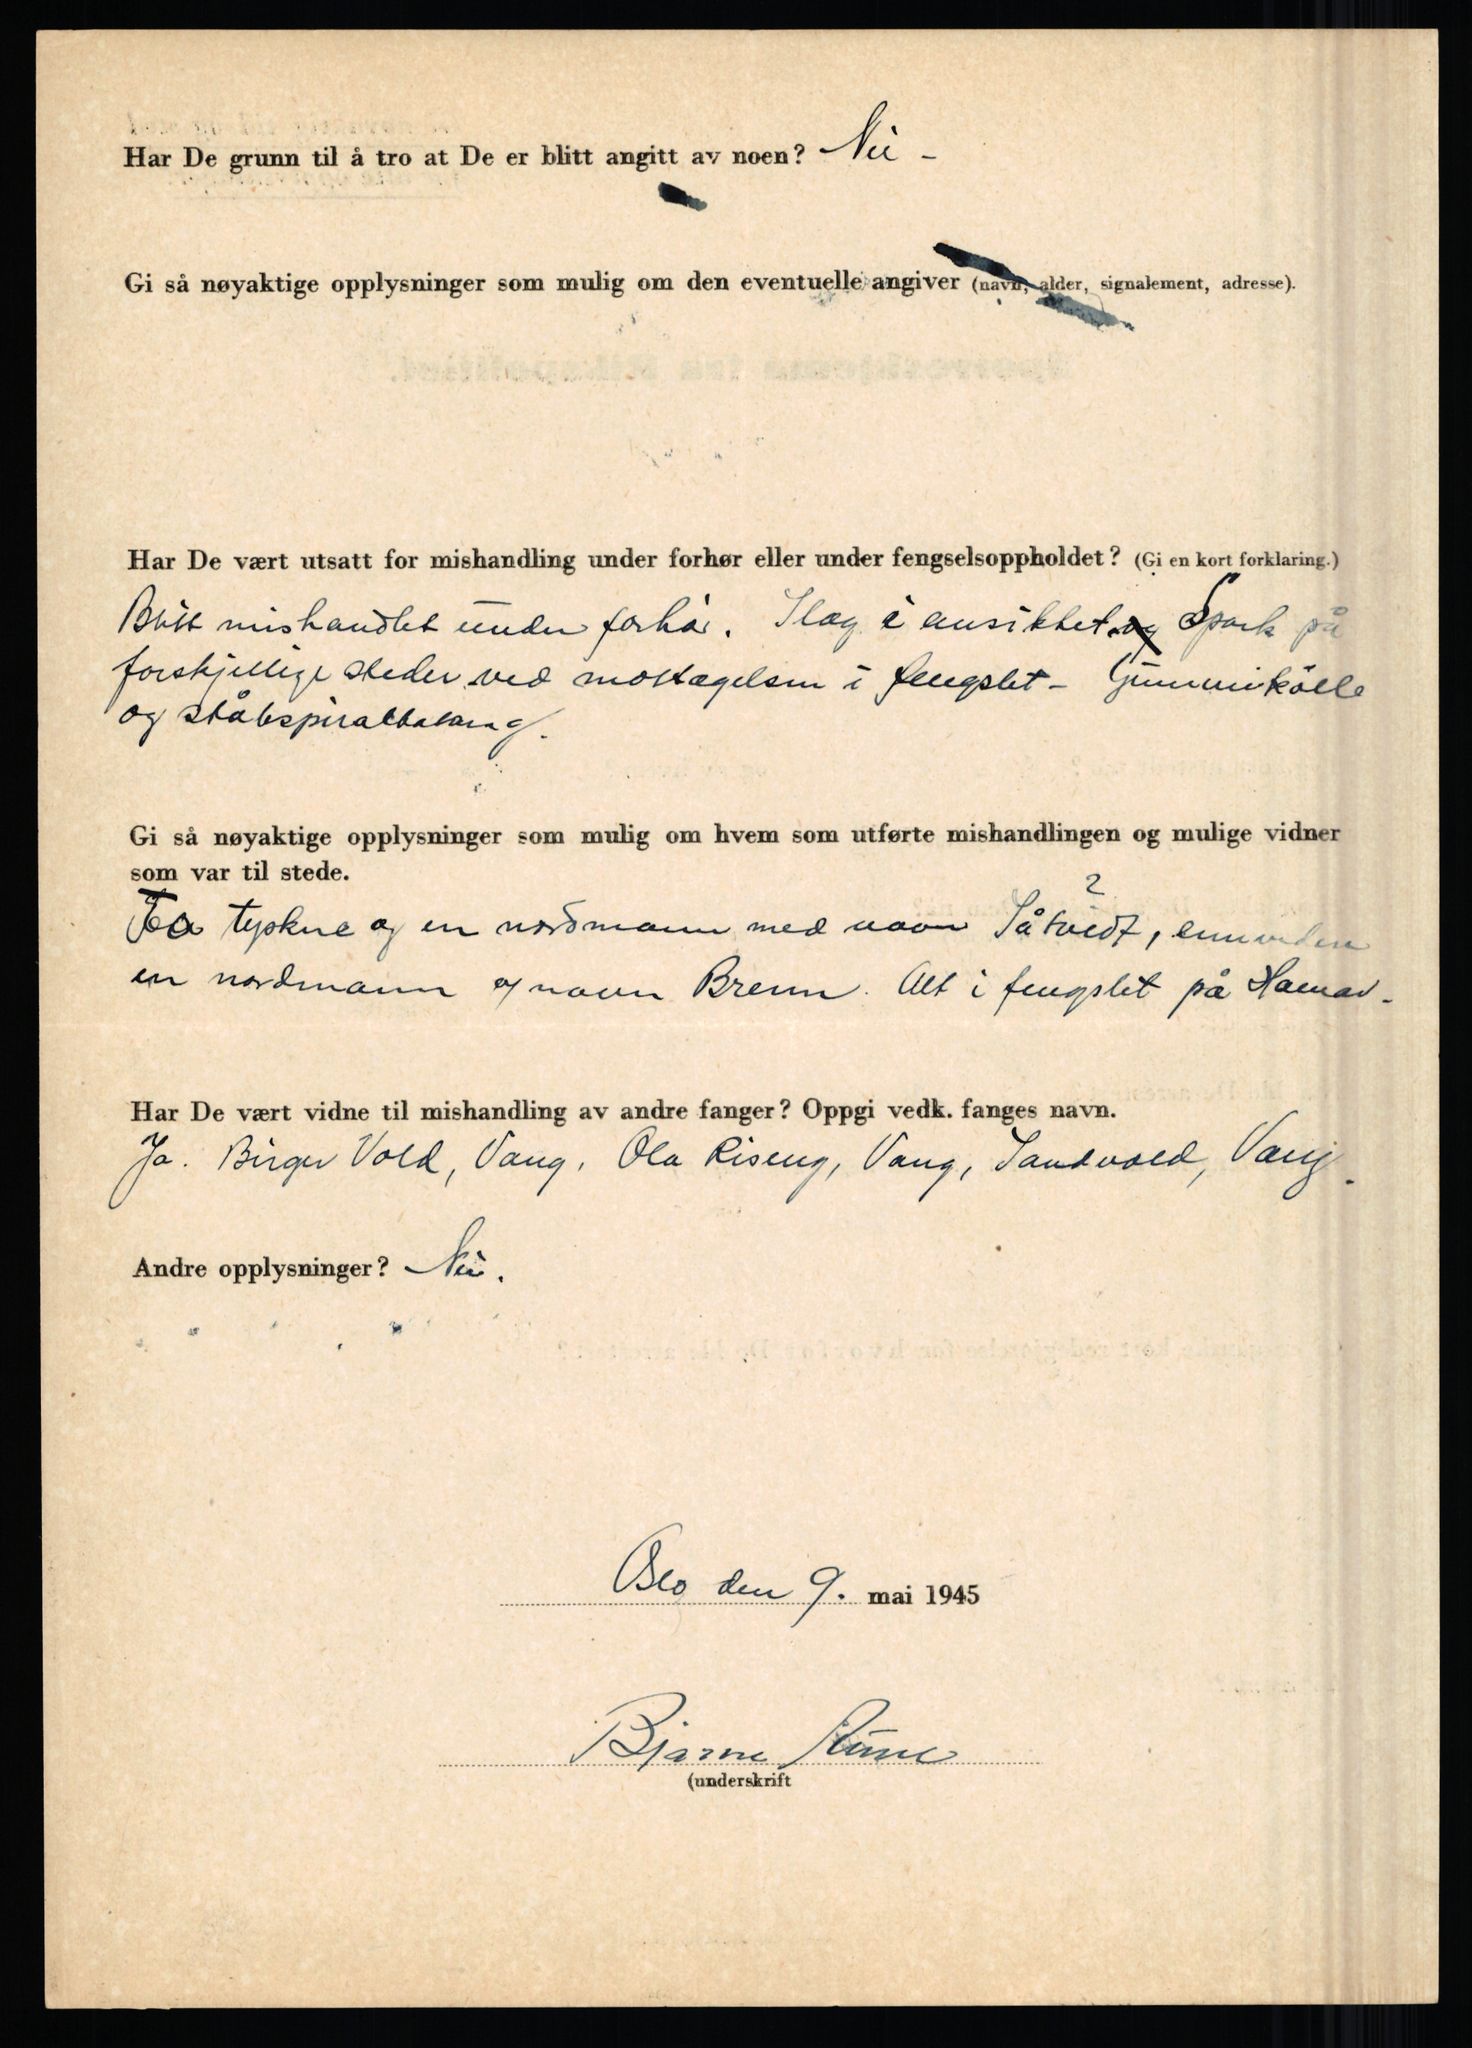 Har De grunn til å tro at De er blitt angitt av noen? Nei -
Gi så nøyaktige opplysninger som mulig om den eventuelle angiver (navn, alder, signalement, adresse).
Har De vært utsatt for mishandling under forhør eller under fengselsoppholdet? (Gi en kort forklaring.)
Blitt mishandlet under forhör. Slag i ansiktet og Spark på
forskjellige steder ved mottagelsen i fengslet - Gummikölle
og stålspiralbatong.
Gi så nøyaktige opplysninger som mulig om hvem som utførte mishandlingen og mulige vidner
som var til stede.
To tyskne og en nordmann med navn Såtvedt?, ennviden
en nordmann og navn Brenn. Alt i fengslet på Hamar.
Har De vært vidne til mishandling av andre fanger? Oppgi vedk. fanges navn.
Ja. Birger Vold, Vang, Ola Riseng, Vang, Sandvold, Vang.
Andre opplysninger? Nei.
Oslo den 9. mai 1945
Bjarne
(underskrift